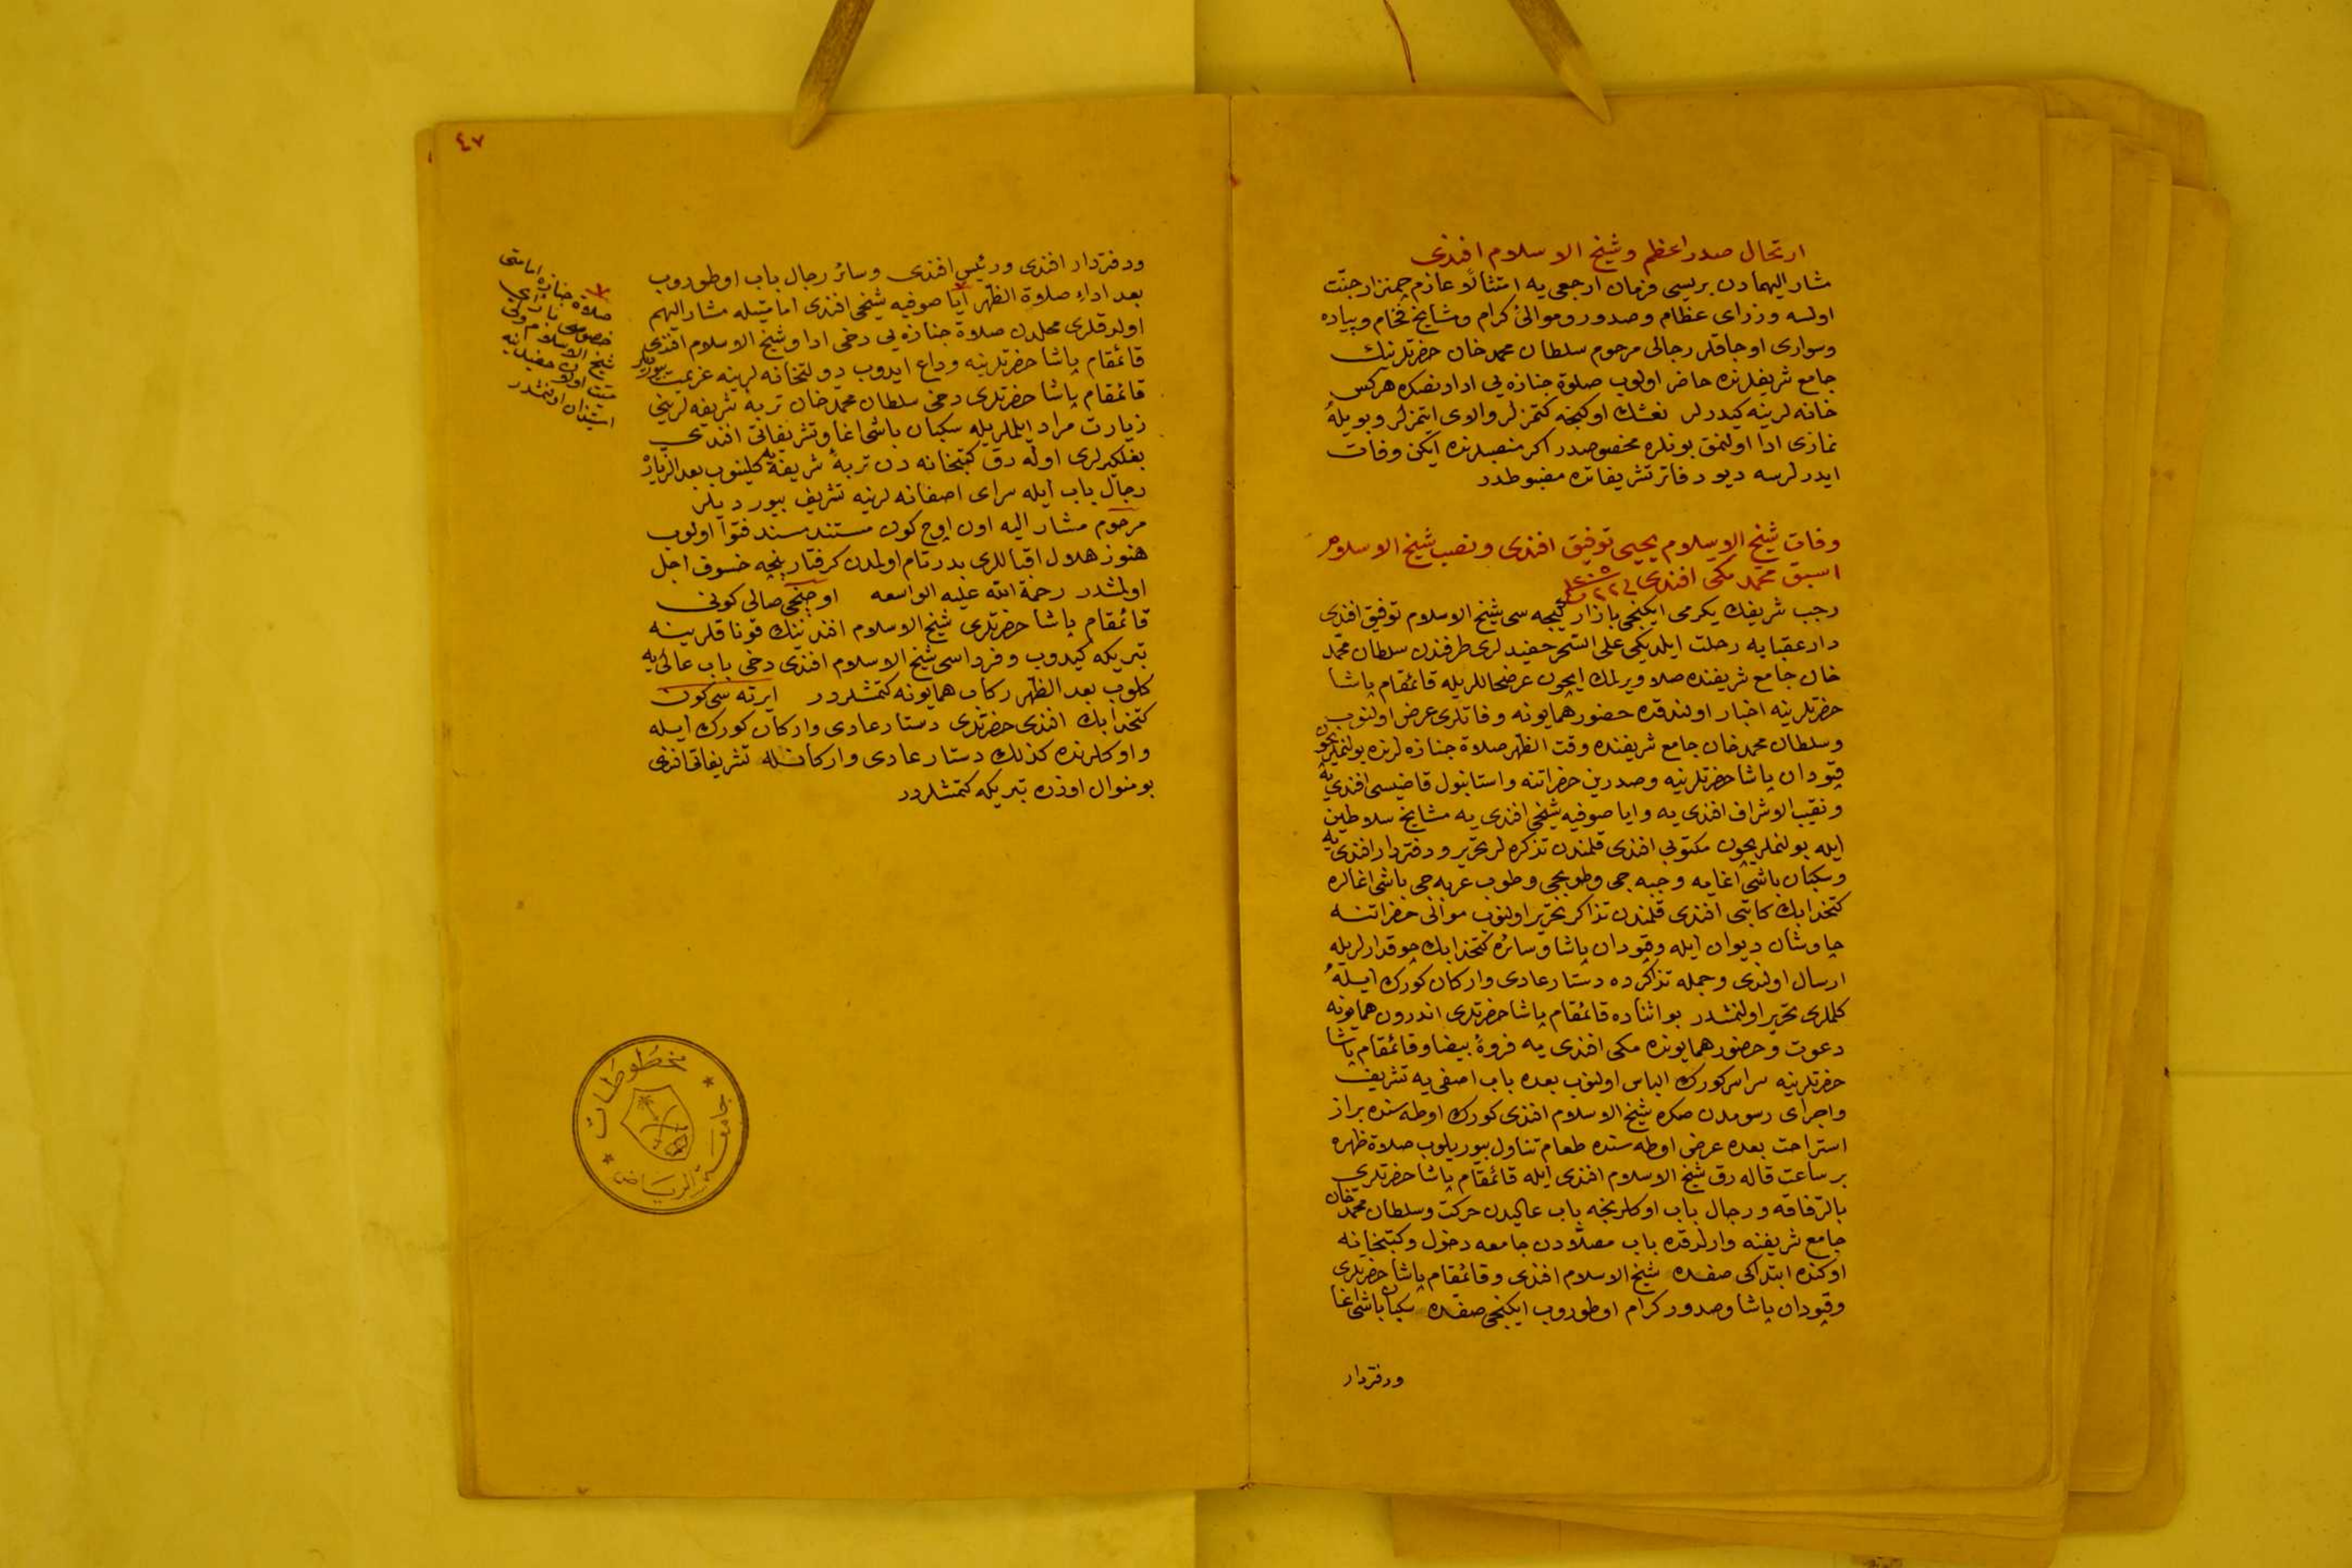 ارتحال صدر اعظم وشيخ الاسلام افندى
مشار اليهمادن بريسى فرمان ارجعى يه امتثالاً عازم چمنزار جنّت
اولسه وزراى عظام وصدور وموالئ كرام ومشايخ فخام وپياده
وسوارى اوجاقلر رجالى مرحوم سلطان محمد خان حضرتلرينك
جامع شريفلرنده حاضر اولوب صلوة جنازه يى ادادنصكره هركس
خانه لرينه كيدرلر نعشك اوكنجه كتمزلر والاى ايتمزلر وبويله
نمازى ادا اولنمق بونلره مخصوصدر اكر منصبلرنده ايكن وفات
ايدرلرسه ديو دفاتر تشريفاتده مضبوطدر
وفات شيخ الاسلام يحيى توفيق افندى ونصب شيخ الاسلام
اسبق محمد مكى افندى فى ٢٢
رجب شريفك يكرمى ايكنجى بازار كيجه سى شيخ الاسلام توفيق افندى
دار عقبايه رحلت ايلديكى على السحر حفيدلرى طرفندن سلطان محمّد
خان جامع شريفنده صلا ويرلمك ايچون عرضحاللريله قائمقام پاشا
حضرتلرينه اخبار اولندقده حضور همايونه وفاتلرى عرض اولنوب
وسلطان محمد خان جامع شريفنده وقت الظهر صلاة جنازه لرنده بولنملريچون
قپودان پاشا حضرتلرينه وصدرين حضراتنه واستانبول قاضيسى افندى يه
ونقيب الاشراف افندى يه وايا صوفيه شيخى افندى يه مشايخ سلاطين
ايله بولنملريچون مكتوبى افندى قلمندن تذكره لر تحرير ودفتردار افندى يه
وسكبان باشى اغايه وجبه جى وطوپجى وطوپ عربه جى باشى اغالره
كتخدا بك كاتبى افندى قلمندن تذاكر تحرير اولنوب موالى حضراتنه
چاوشان ديوان ايله وقپودان پاشا وسائره كتخدا بك چوقدارلريله
ارسال اولندى وجمله تذاكرده دستار عادى واركان كورك ايله
كلملرى تحرير اولنمشدر بو اثناده قائمقام پاشا حضرتلرى اندرون همايونه
دعوت وحضور همايونده مكى افندى يه فروۀ بيضا وقائمقام پاشا
حضرتلرينه سراسر كورك الباس اولنوب بعده باب اصفى يه تشريف
واجراى رسومدن صكره شيخ الاسلام افندى كورك اوطه سنده براز
استراحت بعده عرض اوطه سنده طعام تناول بيوريلوب صلاة ظهره
بر ساعت قاله رق شيخ الاسلام افندى ايله قائمقام پاشا حضرتلرى
بالرفاقه ورجال باب اوكلرنجه باب عاليدن حركت وسلطان محمّد خان
جامع شريفنه وارلدقده باب مصلّادن جامعه دخول وكتبخانه
اوكنده ابتداكى صفده شيخ الاسلام افندى وقائمقام پاشا حضرتلرى
وقپودان پاشا وصدور كرام اوطوروب ايكنجى صفده سكبان باشى اغا
ودفتردار
٤٧
ودفتردار افندى ورئيس افندى وسائر رجال باب اوطوروب
بعد اداء صلاة الظهر ايا صوفيه شيخى افندى امامتيله مشار اليهم
اولدقلرى محلدن صلاة جنازه يى دخى ادا وشيخ الاسلام افندى
قائمقام پاشا حضرتلرينه وداع ايدوب دولتخانه لرينه عزيمت بيورديلر
قائمقام پاشا حضرتلرى دخى سلطان محمّد خان تربۀ شريفه لرينى
زيارت مراد ايلملريله سكبان باشى اغا وتشريفاتى افندى
بغلكيرلرى اوله رق كتبخانه دن تربۀ شريفه يه كلينوب بعد الزياره
رجال باب ايله سراى اصفانه لرينه تشريف بيورديلر
مرحوم مشار اليه اون اوچ كون مستند مسند فتوا اولوب
هنوز هلال اقباللرى بدر تام اولمدن كرفتار پنجه خسوف اجل
اولمشدر رحمة الله عليه الواسعه اوچنجى صالى كونى
قائمقام پاشا حضرتلرى شيخ الاسلام افندينك قوناقلرينه
تبريكه كيدوب وفرداسى شيخ الاسلام افندى دخى باب عالى يه
كلوب بعد الظهر ركاب همايونه كتمشلردر ايرته سى كون
كتخدا بك افندى حضرتلرى دستار عادى واركان كورك ايله
واوكلرنده كذلك دستار عادى واركانله تشريفاتى افندى
بو منوال اوزره تبريكه كتمشلردر
صلاة جنازه امامتى
خصوصى بارأى
شيخ الاسلام ولى
ميت اولان حفيدينه
استيذان اولنمشدر
مخطوطات
جامعة الرياض